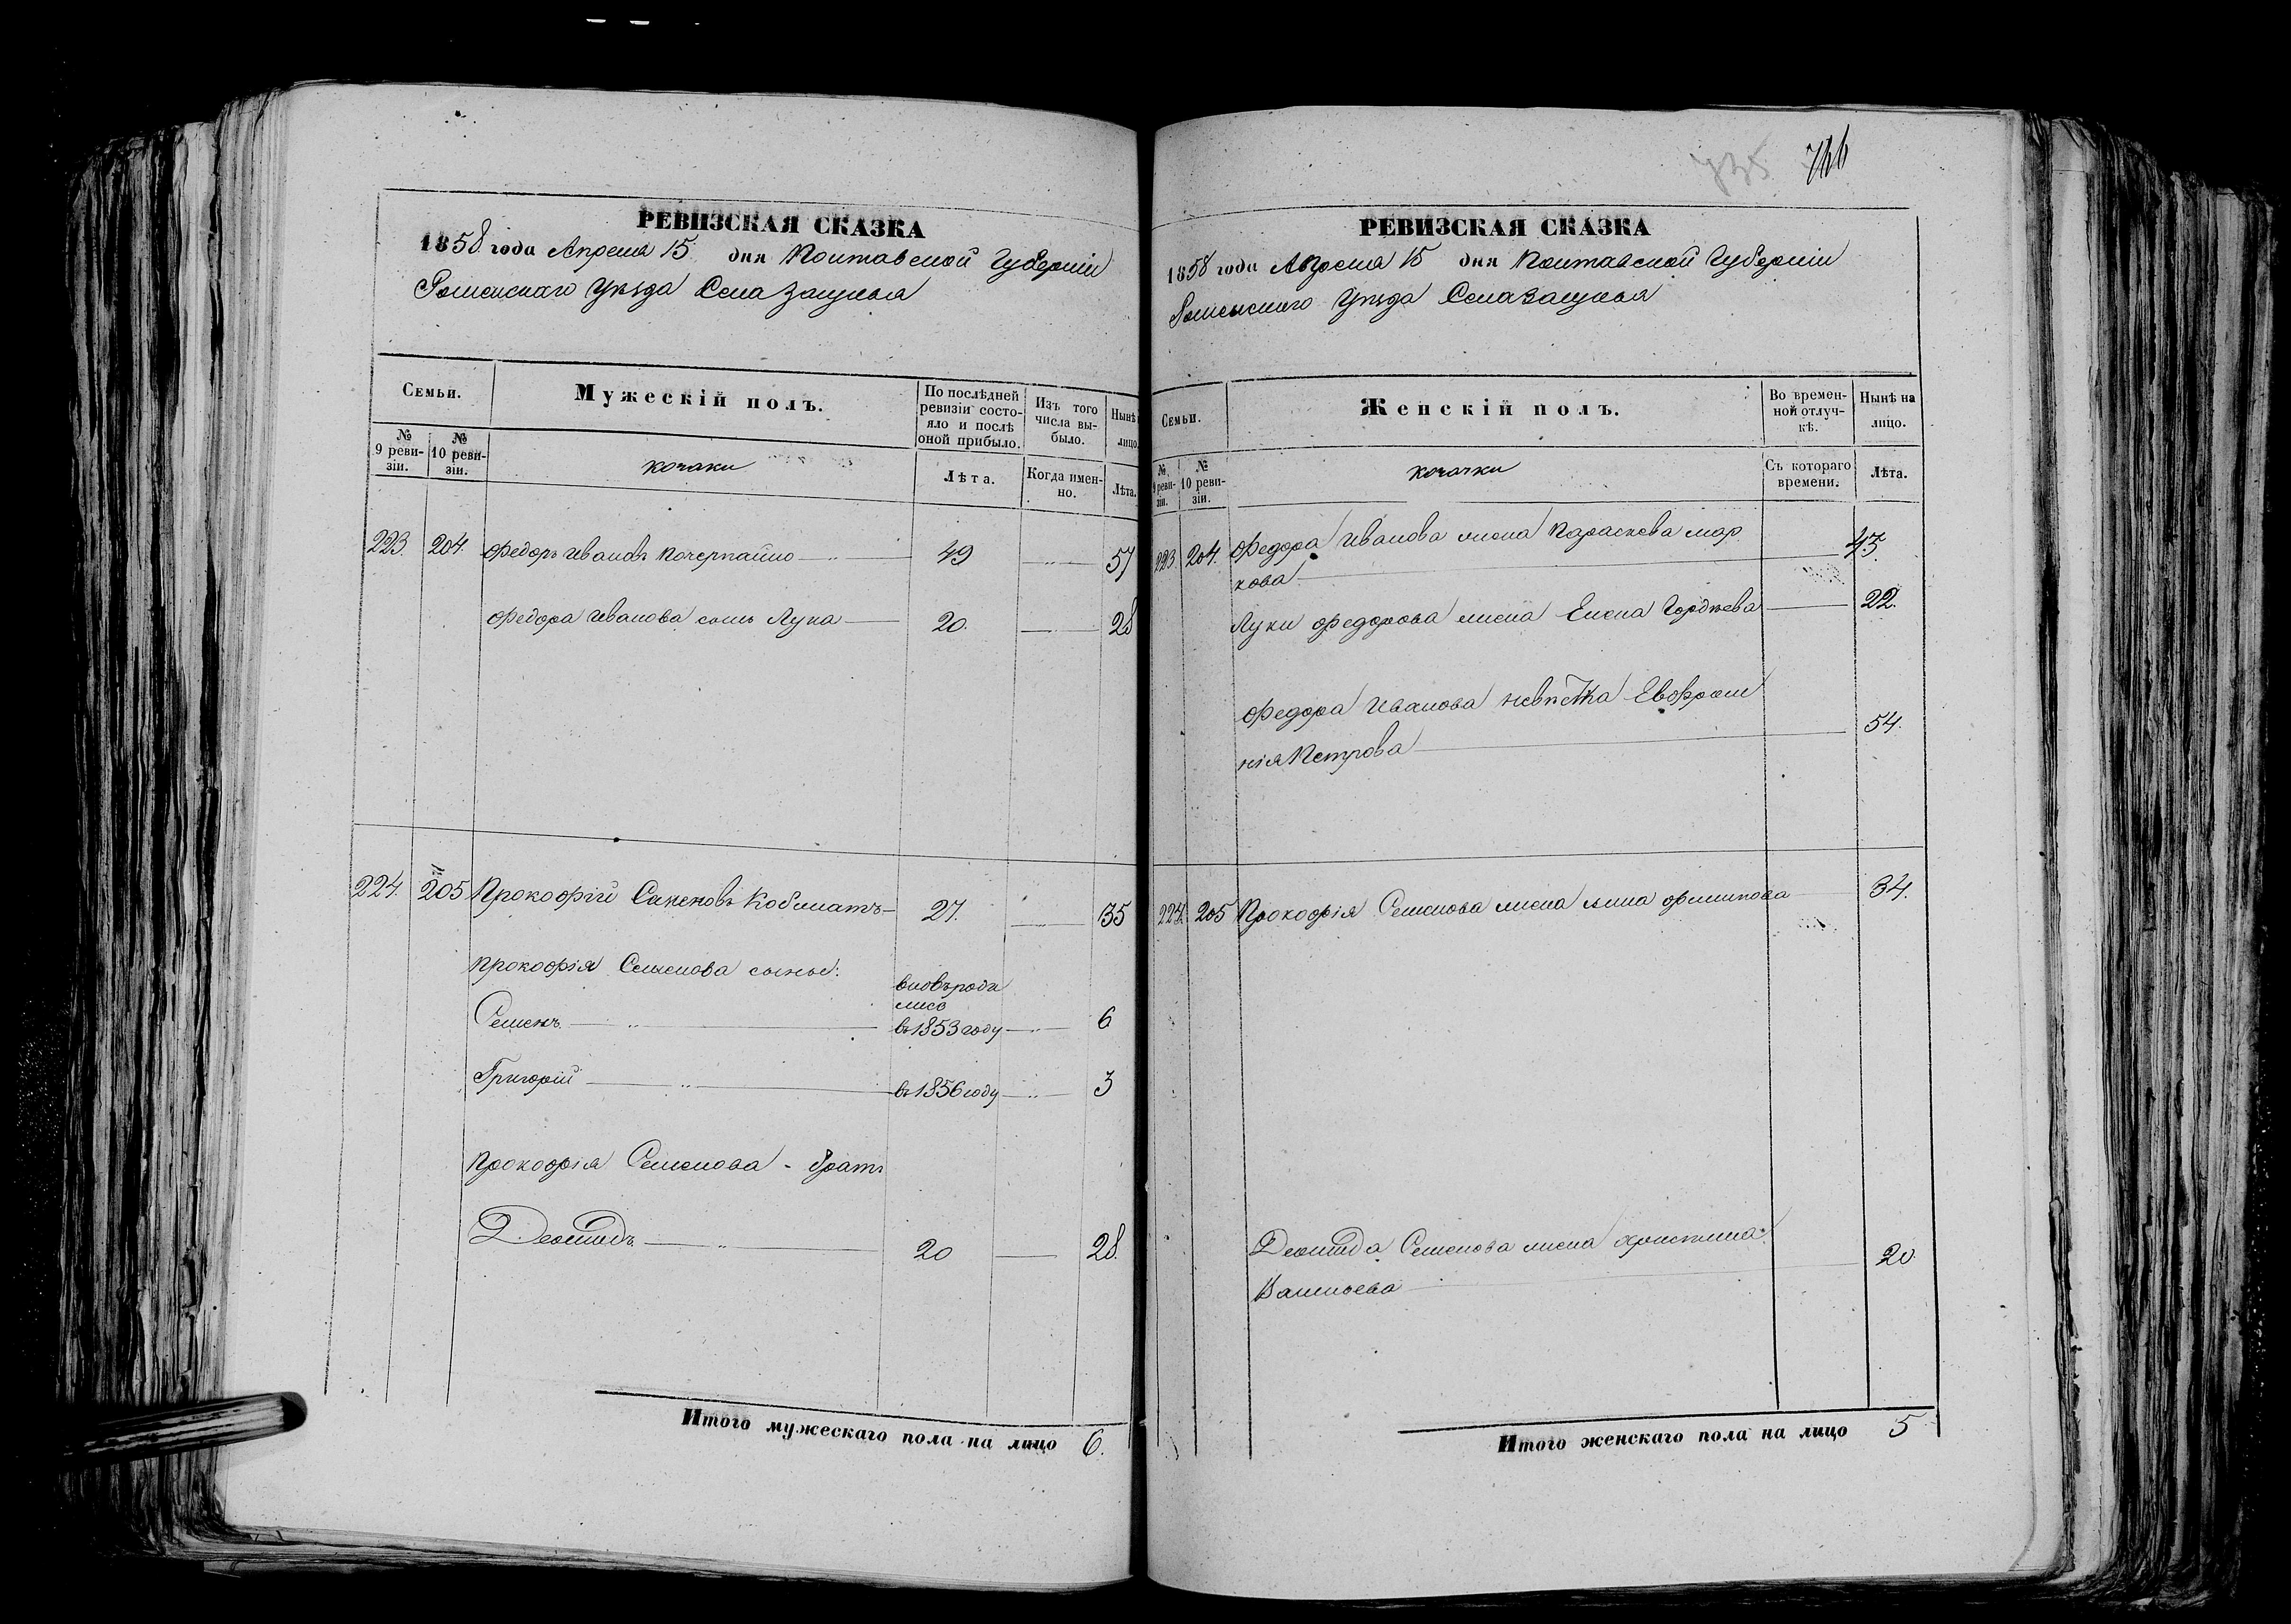 РЕВИЗСКАЯ СКАЗКА
1858 года Апреля 15 дня Полтавской Губерніи
Роменскаго Уѣзда Села
Семьи.
Мужескій полъ.
По послѣдней ревизіи состояло и послѣ оной прибыло.
Изъ того числа выбыло.
Нынѣ лицо
№ 9 ревизіи.
№ 10 ревизіи.
козаки
Лѣта.
Когда именно.
Лѣта.
223. 204. Федоръ Ивановъ 49 57
Федора Иванова сынъ Лука 20. 28
224. 205 Прокофій Семеновъ 27. 35
Прокофія Семенова сынья:
Семенъ
вновь роди
лись
въ 1853 году 6
Григорій въ 1856 году 3
Прокофія Семенова - братъ
Деомидъ 20 28.
Итого мужескаго пола на лицо 6.
735 766
РЕВИЗСКАЯ СКАЗКА
1858 года Апреля 15 дня Полтавской Губерніи
Роменскаго Уѣзда Села
Семьи.
Женскій полъ.
Во временной отлучкѣ.
Нынѣ на лицо.
№ 9 ревизіи.
№ 10 ревизіи.
козачки
Съ котораго времени.
Лѣта.
223. 204. Федора Иванова жена Параскева Мар
кова 43.
Луки Федорова жена Елена Гордѣева 22.
Федора Иванова невѣстка Евфроси
нія Петрова 54.
224. 205 Прокофія Семенова жена Филипова 34.
Деомида Семенова жена Христина
Васильева 20.
Итого женскаго пола на лицо 5